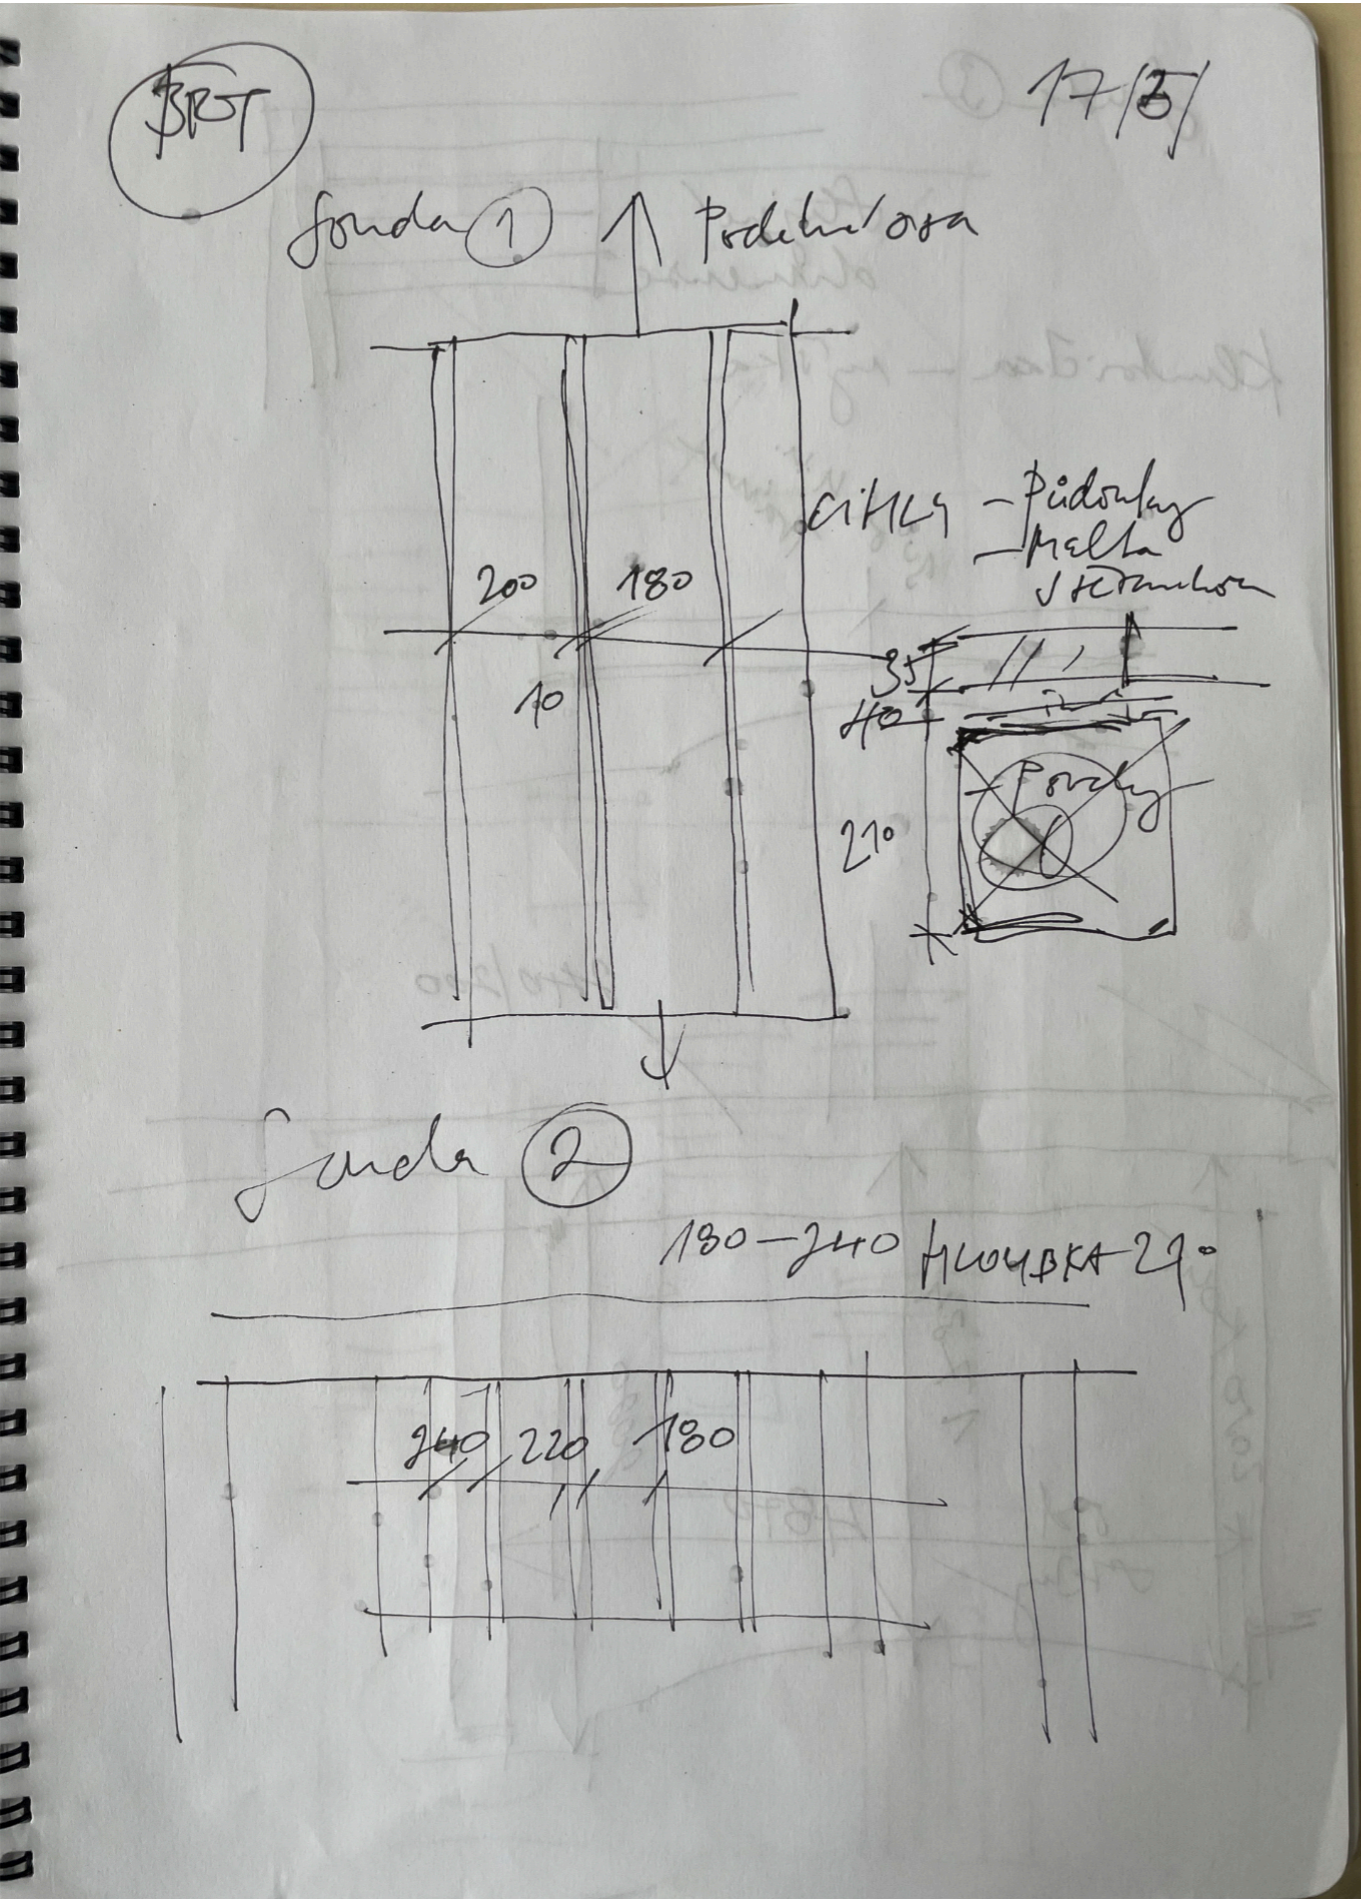 17/5/
Sonda 1
Podélná osa
CIHLY - Půdovky
- Malta
200
180
10
35
40
- Povaly
210
Sonda 2
180-240 HLOUBKA 210
240 220 180